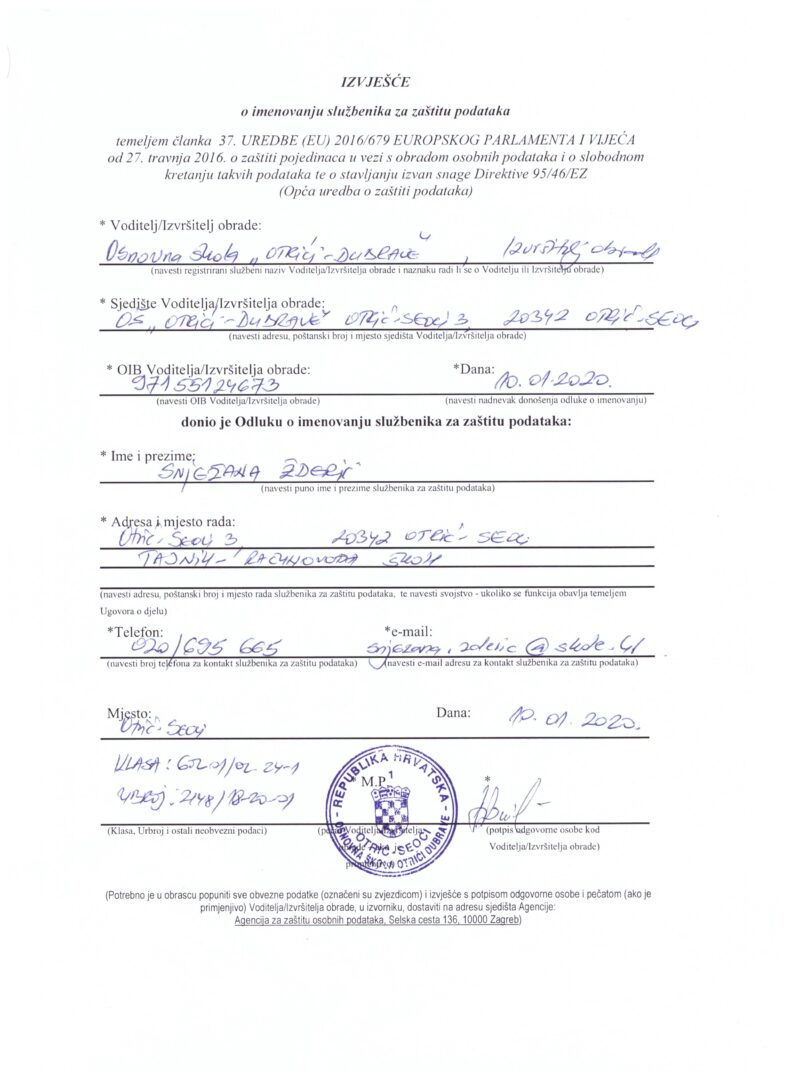 IZVJEŠĆE
o imenovanju službenika za zaštitu podataka
temeljem članka 37. UREDBE (EU) 2016/679 EUROPSKOG PARLAMENTA I VIJEĆA
od 27. travnja 2016. o zaštiti pojedinaca u vezi s obradom osobnih podataka i o slobodnom
kretanju takvih podataka te o stavljanju izvan snage Direktive 95/46/EZ
(Opća uredba o zaštiti podataka)
* Voditelj/Izvršitelj obrade:
Osnovna škola „OTRIĆI-DUBRAVE“, Izvršitelj obrade
(navesti registrirani službeni naziv Voditelja/Izvršitelja obrade i naznaku radi li se o Voditelju ili Izvršitelju obrade)
* Sjedište Voditelja/Izvršitelja obrade:
OŠ „OTRIĆI-DUBRAVE“ OTRIĆ-SEOCI 3, 20342 OTRIĆ-SEOCI
(navesti adresu, poštanski broj i mjesto sjedišta Voditelja/Izvršitelja obrade)
* OIB Voditelja/Izvršitelja obrade: *Dana:
97155124673 10.01.2020.
(navesti OIB Voditelja/Izvršitelja obrade) (navesti nadnevak donošenja odluke o imenovanju)
donio je Odluku o imenovanju službenika za zaštitu podataka:
* Ime i prezime:
SNJEŽANA ŽDERIĆ
(navesti puno ime i prezime službenika za zaštitu podataka)
* Adresa i mjesto rada:
Otrić-Seoci 3 20342 OTRIĆ-SEOCI
TAJNIK-RAČUNOVOĐA ŠKOLE
(navesti adresu, poštanski broj i mjesto rada službenika za zaštitu podataka, te navesti svojstvo - ukoliko se funkcija obavlja temeljem
Ugovora o djelu)
*Telefon: *e-mail:
020/695 665 snjezana.zderic@skole.hr
(navesti broj telefona za kontakt službenika za zaštitu podataka) (navesti e-mail adresu za kontakt službenika za zaštitu podataka)
Mjesto: Dana:
Otrić-Seoci 10.01.2020.
KLASA: 602-01/02-24-1
* M.P.1 *
URBROJ: 2148/18-20-01
(Klasa, Urbroj i ostali neobvezni podaci) Voditelja/Izvršitelja (potpis odgovorne osobe kod
Voditelja/Izvršitelja obrade)
REPUBLIKA HRVATSKA
OSNOVNA ŠKOLA OTRIĆI DUBRAVE
OTRIĆ-SEOCI
(Potrebno je u obrascu popuniti sve obvezne podatke (označeni su zvjezdicom) i izvješće s potpisom odgovorne osobe i pečatom (ako je
primjenjivo) Voditelja/Izvršitelja obrade, u izvorniku, dostaviti na adresu sjedišta Agencije:
Agencija za zaštitu osobnih podataka, Selska cesta 136, 10000 Zagreb)